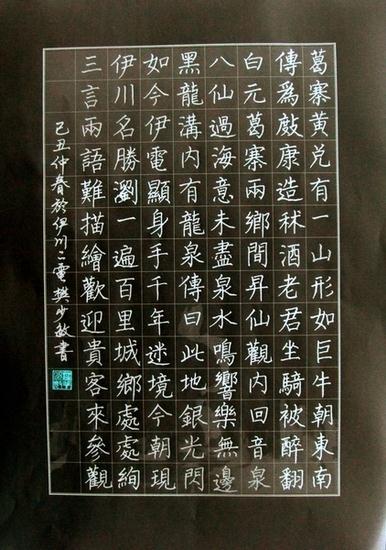 葛寨黄兑有一山形如巨牛朝東南
傳爲康造秫酒老君坐騎被醉翻
白元葛寨兩鄉間昇仙觀内回音泉
八仙過海意未盡泉水鳴響樂無邊
黑龍溝内有龍泉傳曰此地銀光閃
如今伊電顯身手千年迷境今朝現
伊川名勝瀏一遍百里城鄉處處絢
三言兩語難描繪歡迎貴客來參觀
己丑仲春於伊川二電樊少敏書